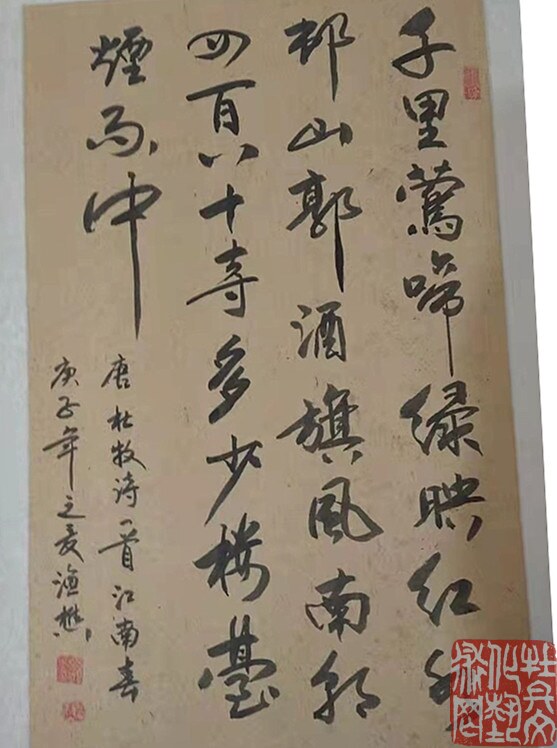 千里鶯啼绿映红水
邨山郭酒旗風南朝
四百八十寺多少楼臺
煙雨中
唐杜牧诗一首江南春
庚子年之夏渔樵